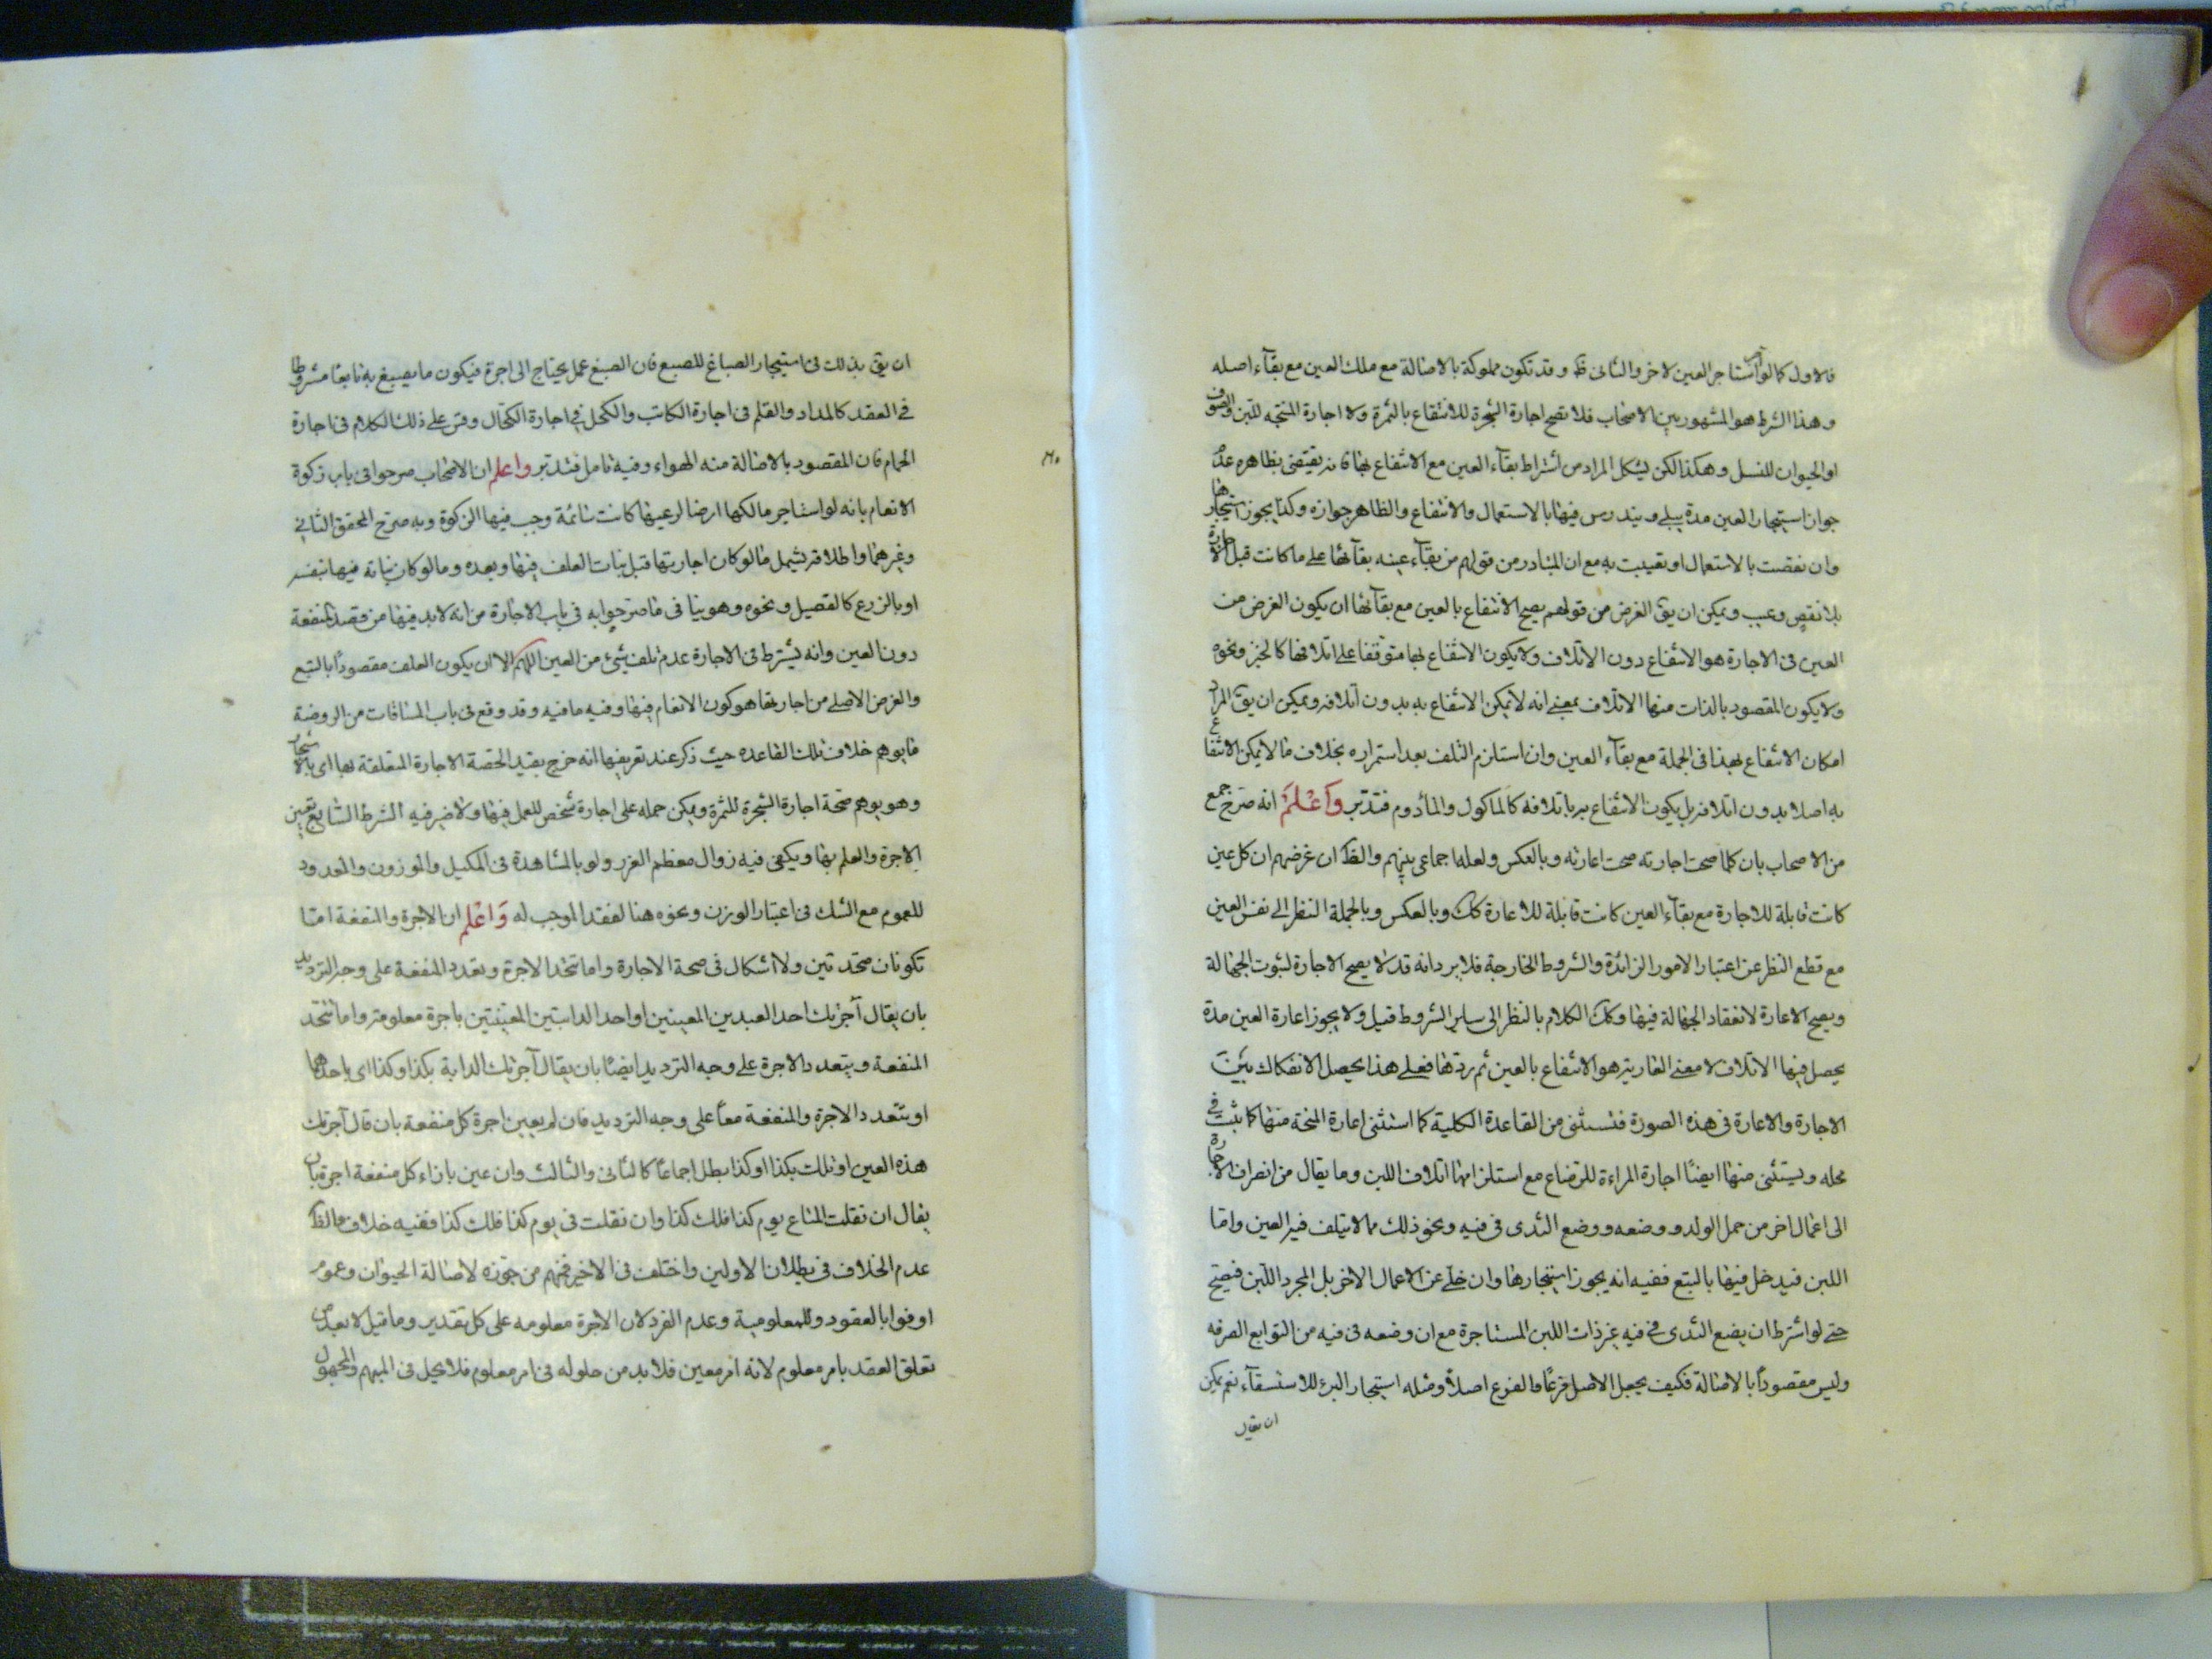 فالاول كما لو استاجر العين لاخر والثانى ظ وقد تكون مملوكة بالاصالة مع ملك العين مع بقآء اصله
وهذا الشرط هو المشهور بين الاصحاب فلا تصح اجارة الشجرة للانتفاع بالثمرة ولا اجارة المنتجه للبن والصوف
او الحيوان للنسل وهكذا لكن يشكل المراد من اشتراط بقآء العين مع الانتفاع بها فانه يقتضى بظاهره عدم
جواز استيجار العين مدة يبلى ويندرس فيها بالاستعمال والانتفاع والظاهر جوازه وكذا يجوز استيجارها
وان نقصت بالاستعمال او تعيبت به مع ان المتبادر من قولهم من بقآء عينه بقآئها على ما كانت قبل الاجارة
بلا نقص وعيب ويمكن ان يق الغرض من قولهم يصح الانتفاع بالعين مع بقآئها ان يكون الغرض من
العين فى الاجارة هو الانتفاع دون الاتلاف ولا يكون الانتفاع بها متوقفا على اتلافها كالخبز ونحوه
ولا يكون المقصود بالذات منها الاتلاف بمعنى انه لا يمكن الانتفاع به بدون اتلافه ويمكن ان يق المراد
امكان الانتفاع بهذا فى الجملة مع بقآء العين وان استلزم التلف بعد استمراره بخلاف ما لا يمكن الانتفاع
به اصلا بدون اتلافه بل يكون الانتفاع به باتلافه كالماكول والمأدوم فتدبر وَاعْلَم انه صرح جمع
من الاصحاب بان كلما صحت اجارته صحت اعارته وبالعكس ولعله اجماعى بينهم والظ ان غرضهم ان كل عين
كانت قابلة للاجارة مع بقآء العين كانت قابلة للاعارة كك وبالعكس وبالجملة النظر الى نفس العين
مع قطع النظر عن اعتبار الامور الزائدة والشروط الخارجة فلا يرد انه قد لا يصح الاجارة لثبوت الجهالة
ويصح الاعارة لانعقاد الجهالة فيها وكك الكلام بالنظر الى ساير الشروط قيل ولا يجوز اعارة العين مدة
يحصل فيها الاتلاف لا معنى العارية هو الانتفاع بالعين ثم ردها فعلى هذا يحصل الانفكاك بين
الاجارة والاعارة فى هذه الصورة فتستثنى من القاعدة الكلية كما استثنى اعارة المنحة منها كما ثبت فى
محله ويستثنى منها ايضًا اجارة المراءة للرضاع مع استلزامها اتلاف اللبن وما يقال من انصراف الاجارة
الى اعمال اخر من حمل الولد ووضعه ووضع الثدى فى فيه ونحو ذلك مما لا يتلف فيه العين واما
اللبن فيدخل فيها بالتبع ففيه انه يجوز استيجارها وان خلى عن الاعمال الاخر بل المجرد اللبن فيصح
حتى لو اشترط ان يضع الثدى فى فيه غير ذات اللبن المستاجرة مع ان وضعه فى فيه من التوابع الصرفه
وليس مقصوداً بالاصالة فكيف يجعل الاصل فرعًا والفرع اصلاً ومثله استيجار البئر للاستسقآء نعم يمكن
ان يقال
ان يق بذلك فى استيجار الصباغ للصبغ فان الصبغ عمل يحتاج الى اجرة فيكون ما يصبغ به تابعًا مشروطا
فى العقد كالمداد والقلم فى اجارة الكاتب والكحل فى اجارة الكحال وقس على ذلك الكلام فى اجارة
الحمام فان المقصود بالاصالة منه الهواء وفيه تامل فتدبر واعلم ان الاصحاب صرحوا فى باب زكوة
الانعام بانه لو استاجر مالكها ارضا لرعيها كانت سائمة وجب فيها الزكوة وبه صرح المحقق الثانى
وغيرهما واطلاقه يشمل ما لو كان اجارتها قبل نبات العلف فيها وبعده وما لو كان نباته فيها بنفسه
او بالزرع كالفصيل ونحوه وهو ينافى ما صرحوا به فى باب الاجارة من انه لا بد فيها من قصد المنفعة
دون العين وانه يشترط فى الاجارة عدم تلف شئ من العين اللهم الا ان يكون العلف مقصوداً بالتبع
والغرض الاصلى من اجارتها هو كون الانعام فيها وفيه ما فيه وقد وقع فى باب المساقات من الروضة
ما يوهم خلاف تلك القاعده حيث ذكر عند تعريفها انه خرج بقيد الحصة الاجارة المتعلقة بها اى بالاشجار
وهو يوهم صحة اجارة الشجرة للثمرة ويمكن حمله على اجارة شخص للعمل فيها ولا ضير فيه الشرط السابع تعيين
الاجرة والعلم بها ويكفى فيه زوال معظم الغرر ولو بالمشاهدة فى المكيل والموزون والمعدود
للعموم مع الشك فى اعتبار الوزن ونحوه هنا لفقد الموجب له وَاعْلم ان الاجرة والمنفعة امّا
تكونان متحدتين ولا اشكال فى صحة الاجارة واما تتحد الاجرة وتعدد المنفعة على وجه الترديد
بان يقال آجرتك احد العبدين المعينين او احد الدابتين المعينتين باجرة معلومة واما تتحد
المنفعة ويتعدد الاجرة على وجه الترديد ايضًا بان يقال آجرتك الدابة بكذا وكذا اى باحدهما
او يتعدد الاجرة والمنفعة معاً على وجه الترديد فان لم يعين اجرة كل منفعة بان قال آجرتك
هذه العين او تلك بكذا او كذا بطل اجماعاً كالثانى والثالث وان عين بازاء كل منفعة اجرة بان
يقال ان نقلت المتاع يوم كذا فلك كذا وان نقلت فى يوم كذا فلك كذا ففيه خلاف والظ
عدم الخلاف فى بطلان الاولين واختلف فى الاخير فمنهم من جوزه لاصالة الحيوان وعموم
اوفوا بالعقود وللمعلومية وعدم الغرر لان الاجرة معلومه على كل تقدير وما قيل لا بد من
تعلق العقد بامر معلوم لانه امر معين فلا بد من حلوله فى امر معلوم فلا يحل فى المبهم والمجهول